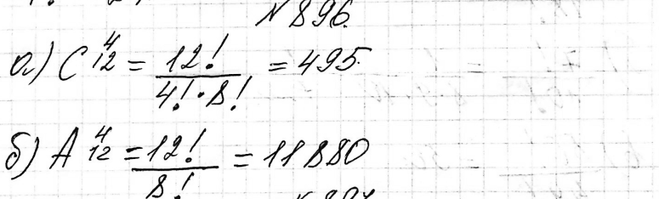 № 896.
а) C₁₂⁴ = 12! / 4!·8! = 495.
б) A₁₂⁴ = 12! / 8! = 11880